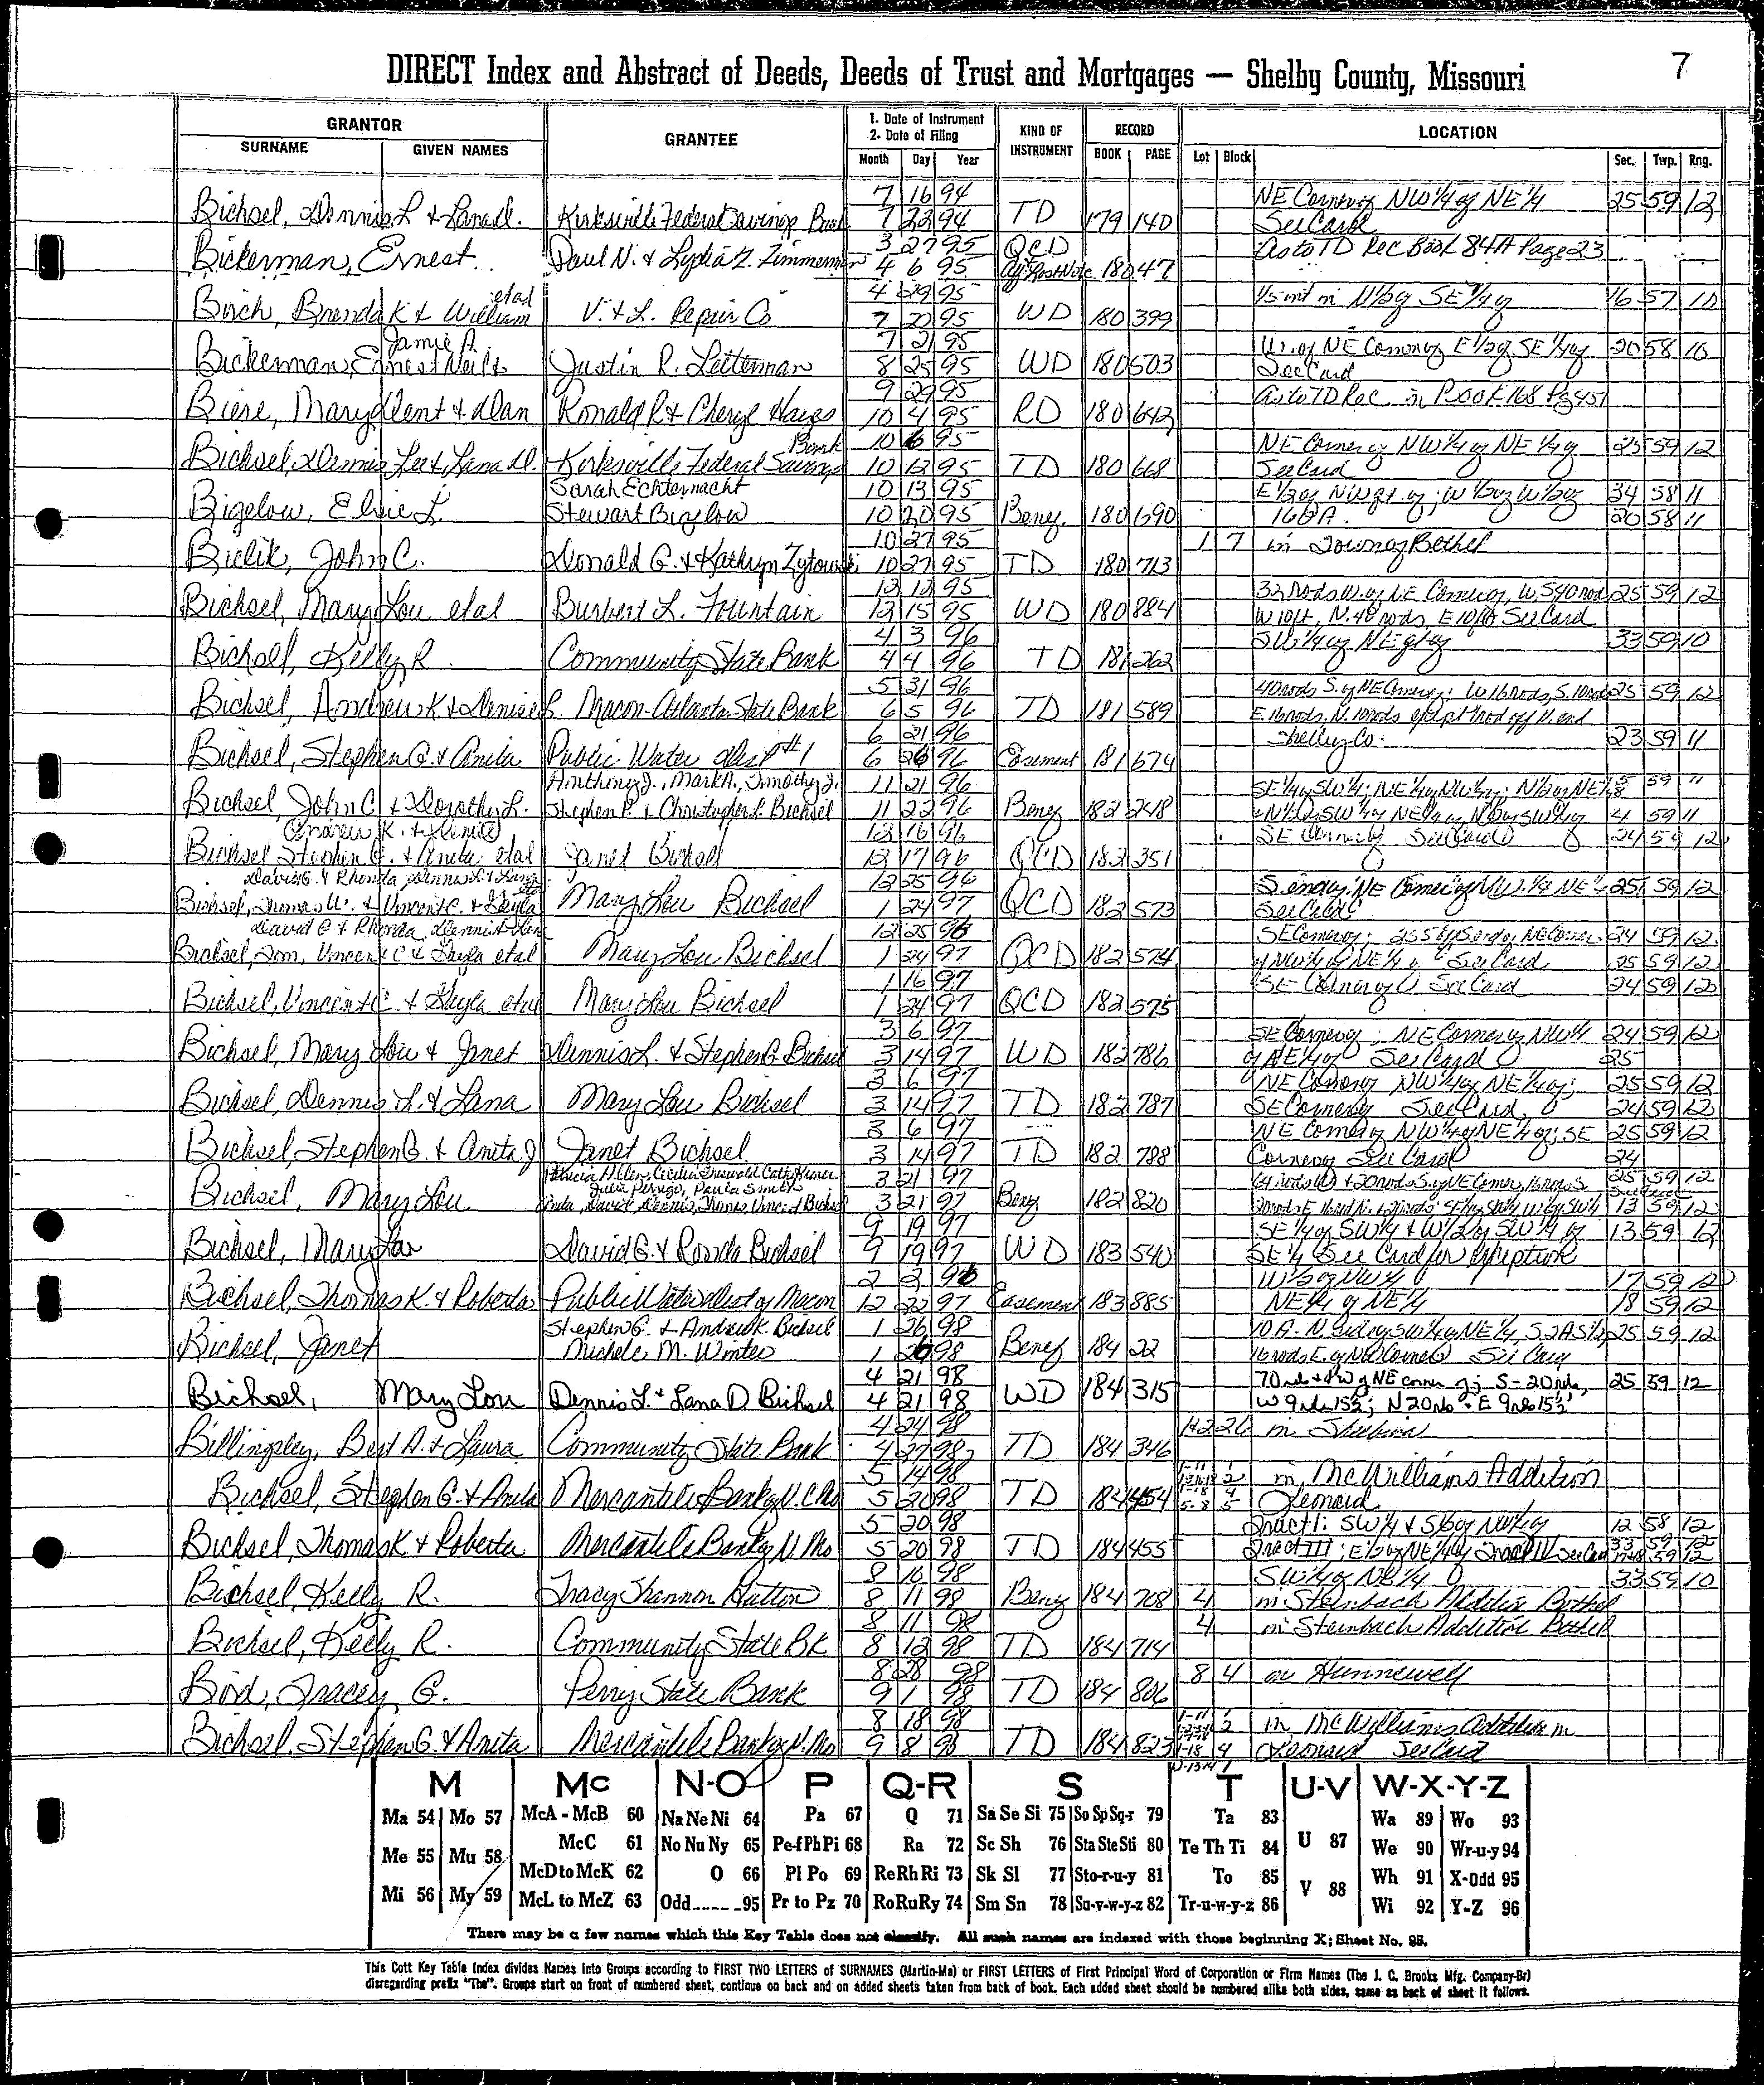 7
DIRECT Index and Abstract of Deeds, Deeds of Trust and Mortgages — Shelby County, Missouri
GRANTOR GRANTEE 1. Date of Instrument 2. Date of Filing KIND OF INSTRUMENT RECORD LOCATION
SURNAME GIVEN NAMES Month Day Year BOOK PAGE Lot Block Sec. Twp. Rng.
7 16 94 NE Corner of NW 1/4 of NE 1/4 25 59 12
Bichsel, Dennis L & Lana D. Kirksville Federal Savings Bank 7 22 94 TD 179 140 See Card
3 27 95 QCD as to TD Rec Book 84A Page 23
Bickerman, Ernest Paul N. & Lydia Z. Zimmerman 4 6 95 180 47
etal 4 29 95 1/5 int in N 1/2 of SE 1/4 of 16 57 10
Birch, Brenda K & William V. & L. Repair Co 7 20 95 WD 180 399
Jamie A. 7 21 95 W. of NE Corner of E 1/2 of SE 1/4 of 20 58 10
Bickerman, Ernest Neil & Justin R. Letterman 8 25 95 WD 180 503 See Card
9 29 95 as to TD Rec in Book 168 Pg 451
Biere, Mary Dent & Dan Ronald R & Cheryl Hayes 10 4 95 RD 180 642
Bank 10 6 95 NE Corner of NW 1/4 of NE 1/4 of 25 59 12
Bichsel, Dennis Lee & Lana D. Kirksville Federal Savings 10 12 95 TD 180 668 See Card
Sarah Echternacht 10 13 95 E 1/2 of NW 1/4 of; W 1/2 of W 1/2 of 34 58 11
Bigelow, Elsie L. Stewart Bigelow 10 20 95 Benef. 180 690 160 A. 20 58 11
10 27 95 1 7 in Town of Bethel
Bielik, John C. Donald G. & Kathryn Zytowski 10 27 95 TD 180 713
12 12 95 32 Rods W. of NE Corner of, W 5 25 59 12
Bichsel, Mary Lou etal Burbert L. Fountain 12 15 95 WD 180 884 W 10 ft, N. 48 rods, E 10 ft See Card
4 3 96 SW 1/4 of NE 1/4 of 33 59 10
Bichsel, Kelly R Community State Bank 4 4 96 TD 181 262
5 31 96 40 rods S. of NE Corner of; W 16 rods, S. 10 rods 25 59 12
Bichsel, Andrew K & Denise L. Macon-Atlanta State Bank 6 5 96 TD 181 589 E. 16 rods, N. 10 rods except 1 rod off N. end
6 21 96 Shelby Co. 23 59 11
Bichsel, Stephen G. & Anita Public Water Dist #1 6 26 96 Easement 181 674
Anthony J., Mark A., Timothy J. 11 21 96 SE 1/4 of SW 1/4; NE 1/4 of NW 1/4 of; N 1/2 of NE 1/4 5 59 11
Bichsel, John C & Dorothy L. Stephen P. & Christopher L. Bichsel 11 22 96 Benef 182 248 4 59 11
Andrew K. & Denise 12 16 96 SE Corner of See Card 24 59 12
Bichsel Stephen G. & Anita etal Janet Bichsel 12 17 96 QCD 182 351
David G. & Rhonda, Dennis L & Lana 12 25 96 S end of; NE Corner of NW 1/4 NE 1/4 25 59 12
Bichsel, Thomas W. & Vincent C. & Gayla Mary Lou Bichsel 1 24 97 QCD 182 573 See Card
David G & Rhonda, Dennis & Lana 12 25 96 SE Corner of; NE Corner 24 59 12
Bichsel, Tom, Vincent C & Gayla etal Mary Lou Bichsel 1 24 97 QCD 182 574 of NW 1/4 of NE 1/4 of See Card 25 59 12
1 16 97 SE Corner of See Card 24 59 12
Bichsel, Vincent C. & Gayla etal Mary Lou Bichsel 1 24 97 QCD 182 575
3 6 97 SE Corner of; NE Corner of NW 1/4 24 59 12
Bichsel, Mary Lou & Janet Dennis L. & Stephen G. Bichsel 3 14 97 WD 182 786 of NE 1/4 of See Card 25
3 6 97 NE Corner of NW 1/4 of NE 1/4 of; 25 59 12
Bichsel, Dennis L. & Lana Mary Lou Bichsel 3 14 97 TD 182 787 SE Corner of See Card 24 59 12
3 6 97 NE Corner of NW 1/4 of NE 1/4 of; SE 25 59 12
Bichsel, Stephen G. & Anita J Janet Bichsel 3 14 97 TD 182 788 Corner of See Card 24
Patricia Allen, Cecilia 3 21 97 25 59 12
Julia Perrigo, Paula Smith
Bichsel, Mary Lou Linda, David, Dennis, Thomas, Vincent Bichsel 3 21 97 Benef 182 820 13 59 12
9 19 97 SE 1/4 of SW 1/4 & W 1/2 of SW 1/4 of 13 59 12
Bichsel, Mary Lou David G. & Ronda Bichsel 9 19 97 WD 183 540 SE 1/4 See Card for Exception
2 2 96 W 1/2 of NW 1/4 17 59 12
Bichsel, Thomas K. & Roberta Public Water Dist of Macon 12 22 97 Easement 183 885 NE 1/4 of NE 1/4 18 59 12
Stephen G. & Andrew K. Bichsel 1 26 98 10 A. N. end of SW 1/4 of NE 1/4, 25 59 12
Bichsel, Janet Michele M. Winter 1 26 98 Benef 184 22 16 rods E. of NW Corner See Card
4 21 98 70 rds W of NE corner of; S-20 rds, 25 59 12
Bichsel, Mary Lou Dennis L. & Lana D Bichsel 4 21 98 WD 184 315 W 9 rds 15 1/2'; N 20 rds E 9 rds 15 1/2'
4 24 98 1&2 26 in Shelbina
Billingsley, Bert A. & Laura Community State Bank 4 27 98 TD 184 346
5 14 98 in McWilliams Addition
Bichsel, Stephen G. & Anita Mercantile Bank of N. C Mo 5 20 98 TD 184 454 5-8 5 Leonard
5 20 98 Tract I: SW 1/4 & S 1/2 of NW 1/4 of 12 58 12
Bichsel, Thomas K & Roberta Mercantile Bank of N. Mo 5 20 98 TD 184 455 Tract III; E 1/2 of NE 1/4 of Tract IV See Card
8 10 98 SW 1/4 of NE 1/4 33 59 10
Bichsel, Kelly R. Tracy Shannon Hutton 8 11 98 Benef 184 708 4 in Steinbach Addition Bethel
8 11 98 4 in Steinbach Addition Bethel
Bichsel, Kelly R. Community State Bk 8 12 98 TD 184 714
8 28 98 8 4 in Hunnewell
Bird, Tracey G. Perry State Bank 9 1 98 TD 184 806
8 18 98 in McWilliams Addition in
Bichsel, Stephen G. & Anita Mercantile Bank of N. Mo 9 8 98 TD 184 823 1-18 4 Leonard See Card
M Mc N-O P Q-R S T U-V W-X-Y-Z
Ma 54 Mo 57 McA - McB 60 Na Ne Ni 64 Pa 67 Q 71 Sa Se Si 75 So Sp Sq-r 79 Ta 83 Wa 89 Wo 93
McC 61 No Nu Ny 65 Pe-f Ph Pi 68 Ra 72 Sc Sh 76 Sta Ste Sti 80 Te Th Ti 84 U 87 We 90 Wr-u-y 94
Me 55 Mu 58 McD to McK 62 O 66 Pl Po 69 Re Rh Ri 73 Sk Sl 77 Sto-r-u-y 81 To 85 Wh 91 X-Odd 95
Mi 56 My 59 McL to McZ 63 Odd 95 Pr to Pz 70 Ro Ru Ry 74 Sm Sn 78 Su-v-w-y-z 82 Tr-u-w-y-z 86 V 88 Wi 92 Y-Z 96
There may be a few names which this Key Table does not classify. All such names are indexed with those beginning X; Sheet No. 95.
This Cott Key Table Index divides Names into Groups according to FIRST TWO LETTERS of SURNAMES (Martin-Ma) or FIRST LETTERS of First Principal Word of Corporation or Firm Names (The J. C. Brooks Mfg. Company-Br)
disregarding prefix "The". Groups start on front of numbered sheet, continue on back and on added sheets taken from back of book. Each added sheet should be numbered alike both sides, same as back of sheet it follows.